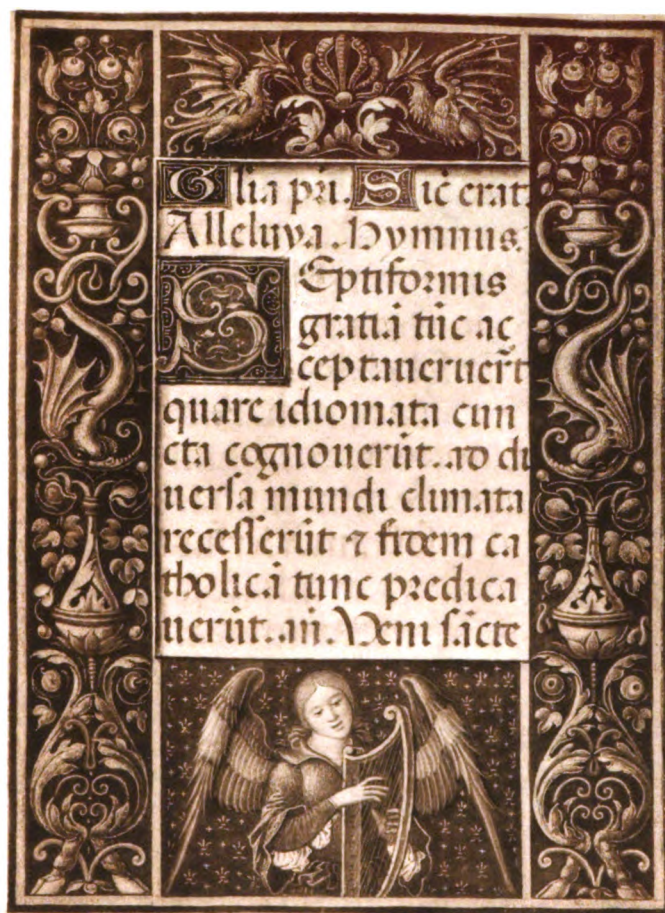 Glia pri. Sic erat.
Alleluya. Hymnus.
Septiformis
gratiā tūc ac
ceptaueruer̄t
quare idiomata cun
cta cognouerūt. ad di
uersa mundi climata
recesserūt ⁊ fidem ca
tholicā tunc predica
uerūt. añ. Veni sācte